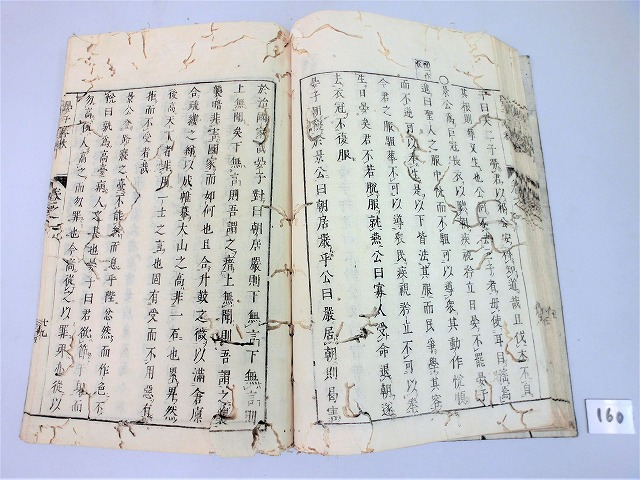 景公為巨冠長衣以聽朝疾視矜立日晏不罷晏子
進曰聖人之服中侻而不駔可以導衆其動作侻順
而不逆可以奉生是以下皆法其服而民爭學其容
今君之服駔華不可以導衆民疾視矜立不可以奉
生日晏矣君不若脫服就燕公曰寡人受命退朝遂
去衣冠不復服
晏子朝復于景公曰朝居嚴乎公曰嚴居朝則曷害
於治國家哉晏子對曰朝居嚴則下無言下無言則
上無聞矣下無言則吾謂之瘖上無聞則吾謂之聾
聾瘖非害國家而如何也且合升鼓之微以滿倉廩
合疏縷之綈以成幃幕大山之高非一石也累卑然
後高天下者非用一士之言也固有受而不用惡有
拒而不受者哉
景公登路寢之臺不能終而息乎陛忿然而作色不
悅曰孰為高臺病人之甚也晏子曰君欲節于身而
勿高使人高之而勿罪也今高從之以罪卑亦從以
160